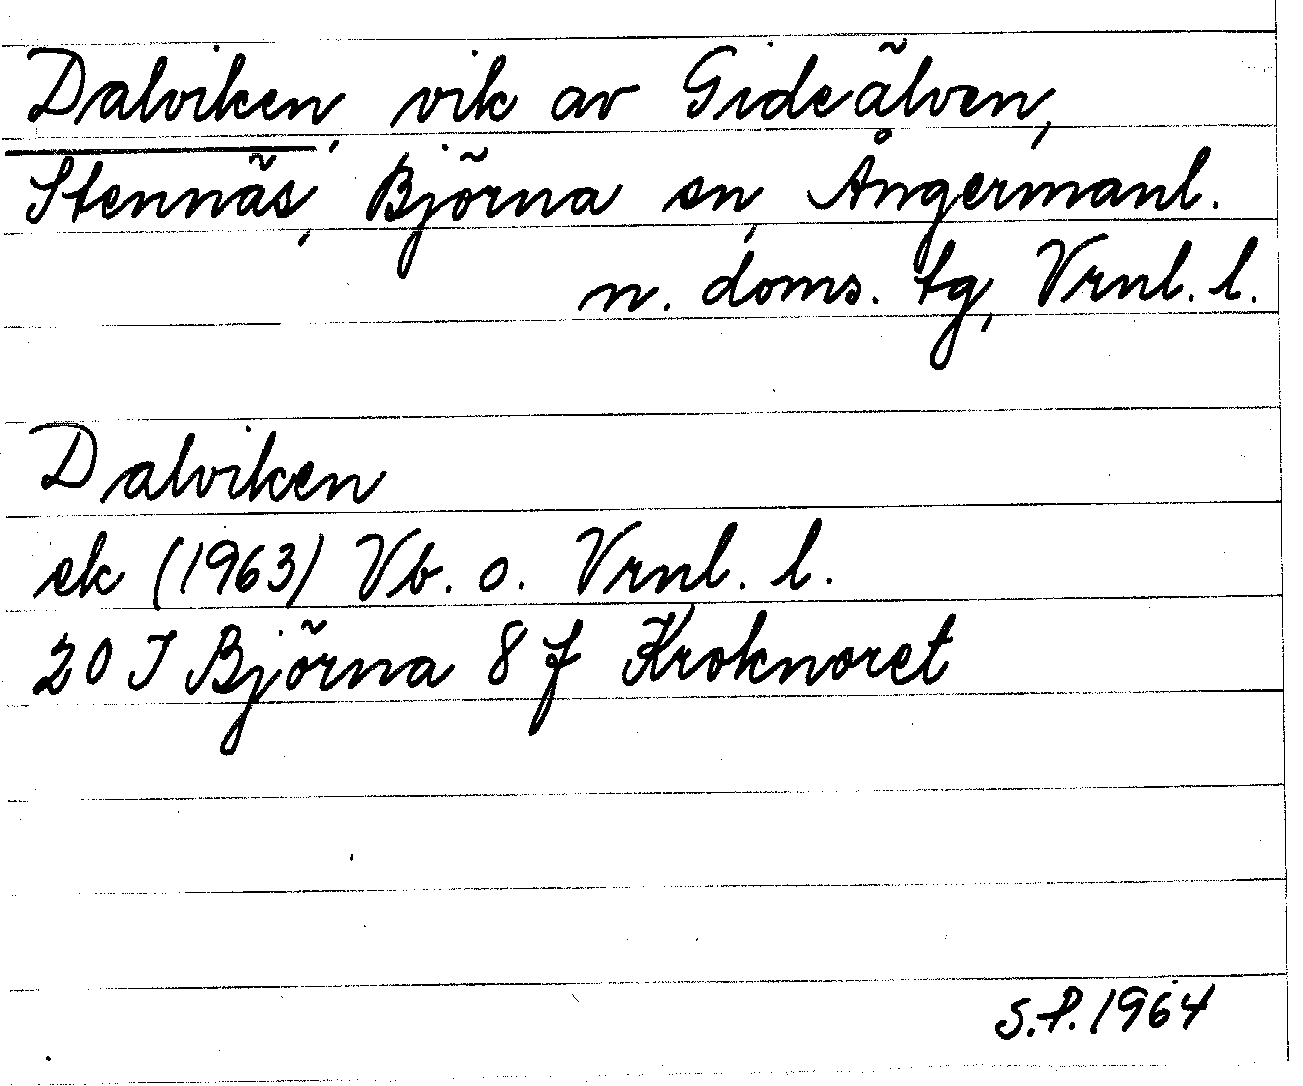 Dalviken, vik av Gideälven,
Stennäs, Björna sn, Ångermanl.
n. doms. tg, Vrnl. l.
Dalviken
ek (1963) Vb. o. Vrnl. l.
20 J Björna 8 f Kroknoret
S.P. 1964